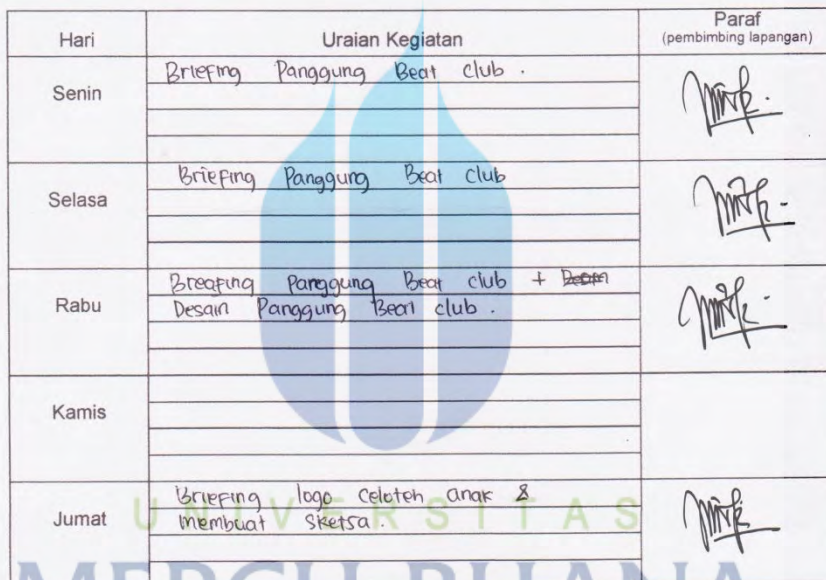 Hari Uraian Kegiatan Paraf
(pembimbing lapangan)
Senin
Briefing Panggung Beat club .
Selasa
Briefing Panggung Beat club
Rabu
Breafing Panggung Beat club +
Desain Panggung Beat club .
Kamis
Jumat
Briefing logo celoteh anak &
membuat sketsa .
UNIVERSITAS
MERCU BUANA